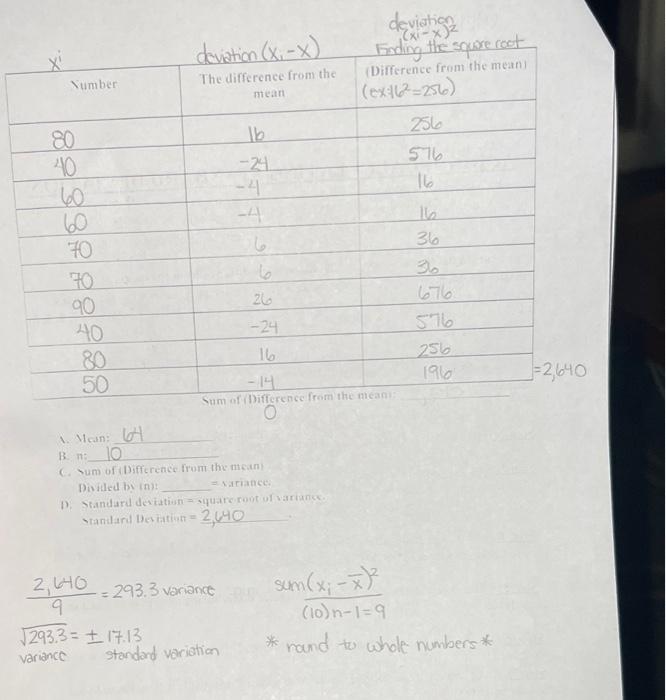 deviation
(xi-x)2
xi deviation (xi-x) Finding the square root
Number The difference from the mean (Difference from the mean)
(ex:16²=256)
80 16 256
40 -24 576
60 -4 16
60 -4 16
70 6 36
70 6 36
90 26 676
40 -24 576
80 16 256
50 -14 196 =2,640
Sum of (Difference from the mean):
0
A. Mean: 64
B. n: 10
C. Sum of (Difference from the mean)
Divided by (n): = variance.
D. Standard deviation = square root of variance.
Standard Deviation = 2,640.
2,640/9 = 293.3 variance
sum(xi-x̄)²
(10)n-1=9
√293.3 = ± 17.13
variance standard variation
* round to whole numbers *